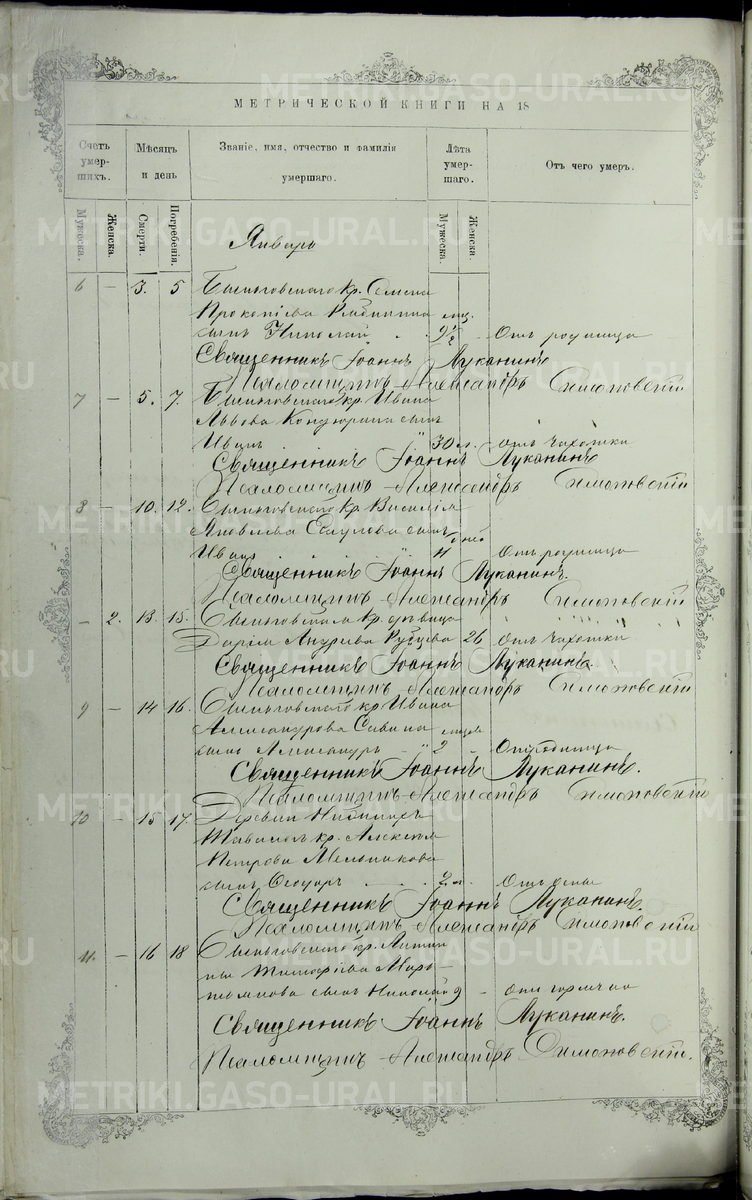 МЕТРИЧЕСКОЙ КНИГИ НА 18
Счетъ умершихъ. Мѣсяцъ и день Званіе, имя, отчество и фамилія умершаго. Лѣта умершаго. Отъ чего умеръ.
Мужеска. Женска. Смерти. Погребенія. Мужеска. Женска.
Январь
6 — 3. 5 кр. Семена
Прокопіева мц.
сынъ Николай . . 9½ Отъ родимца
Священникъ Іоаннъ Луканинъ
Псаломщикъ Александръ Симоновскій
7 — 5. 7. кр. Ивана
Львова Кондюрина сынъ
Иванъ " 30 л. отъ чахотки
Священникъ Іоаннъ Луканинъ
Псаломщикъ Александръ Симоновскій
8 — 10. 12. кр. Василія
Яковлева сынъ дней
Иванъ 11 Отъ родимца
Священникъ Іоаннъ Луканинъ.
Псаломщикъ Александръ Симоновскій
— 2. 13. 15. кр. дѣвица
Дарія Андреева 26 отъ чахотки
Священникъ Іоаннъ Луканинъ.
Псаломщикъ Александръ Симоновскій
9 — 14 16. кр. Ивана
Александрова Савина мцев
сынъ Александръ " 2 — Отъ родимца
Священникъ Іоаннъ Луканинъ.
Псаломщикъ Александръ Симоновскій
10 — 15 17. Деревни
кр. Алексѣя
Петрова Мельникова
сынъ Ѳеодоръ . . . 2 л. Отъ оспы
Священникъ Іоаннъ Луканинъ.
Псаломщикъ Александръ Симоновскій
11. — 16 18 кр. Антипы
сынъ Николай 9 — отъ горячки
Священникъ Іоаннъ Луканинъ.
Псаломщикъ Александръ Симоновскій.
METRIKI.GASO-URAL.RU